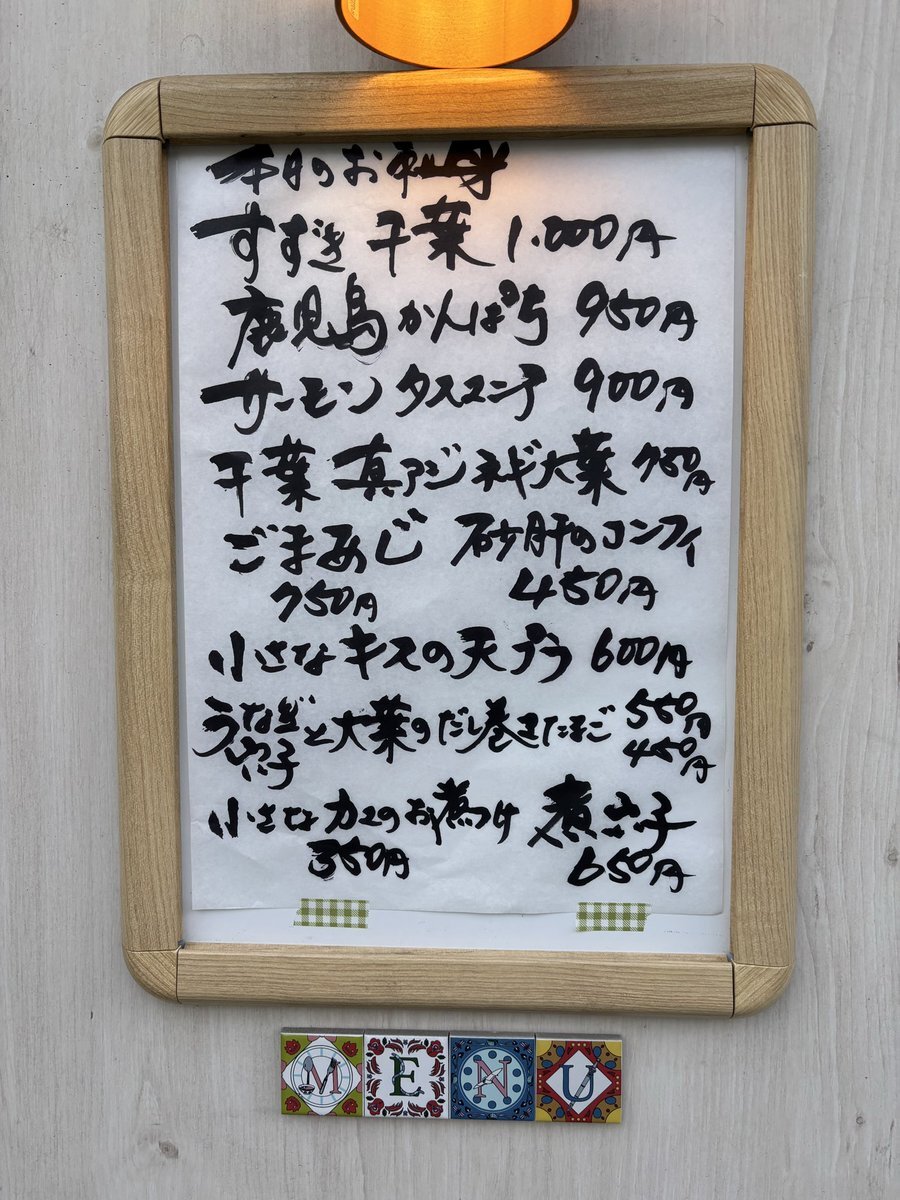 本日のお刺身
すずき 千葉 1.000円
鹿児島 かんぱち 950円
サーモン タスマニア 900円
千葉 真アジ ネギ大葉 750円
ごまあじ 砂肝のコンフィ
750円 450円
小さなキスの天プラ 600円
うなぎと大葉のだし巻きたまご 550円
穴子 450円
小さなカマのお煮つけ 煮穴子
350円 650円
MENU